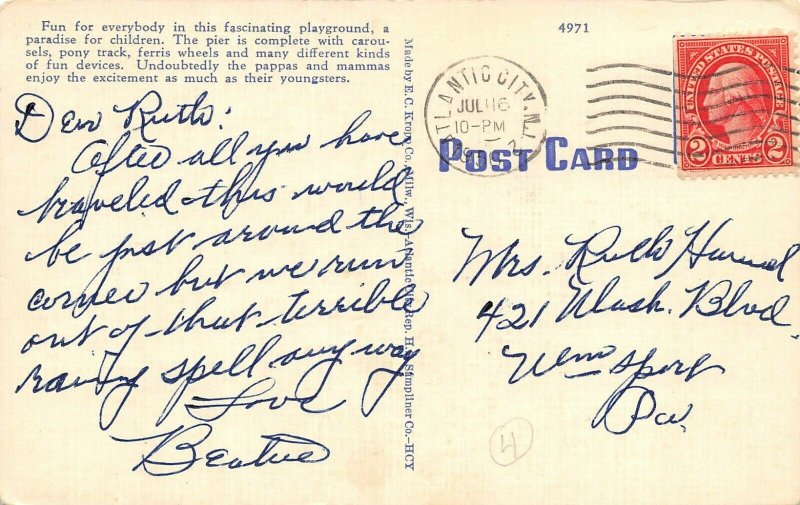 Fun for everybody in this fascinating playground, a
paradise for children. The pier is complete with carou-
sels, pony track, ferris wheels and many different kinds
of fun devices. Undoubtedly the pappas and mammas
enjoy the excitement as much as their youngsters.
Dear Ruth:
After all you have
traveled this would
be just around the
corner but we run
out of that terrible
rainy spell anyway
Love
Beatrice
Made by E. C. Kropp Co., Milw., Wis.-Atlantic City Rep. H. Sampliner Co.-HCY
4971
ATLANTIC CITY, N.J.
JUL 16
10-PM
POST CARD
UNITED STATES POSTAGE
2 CENTS 2
Mrs. Ruth
421 Wash. Blvd,
Wmsport
Pa.
4